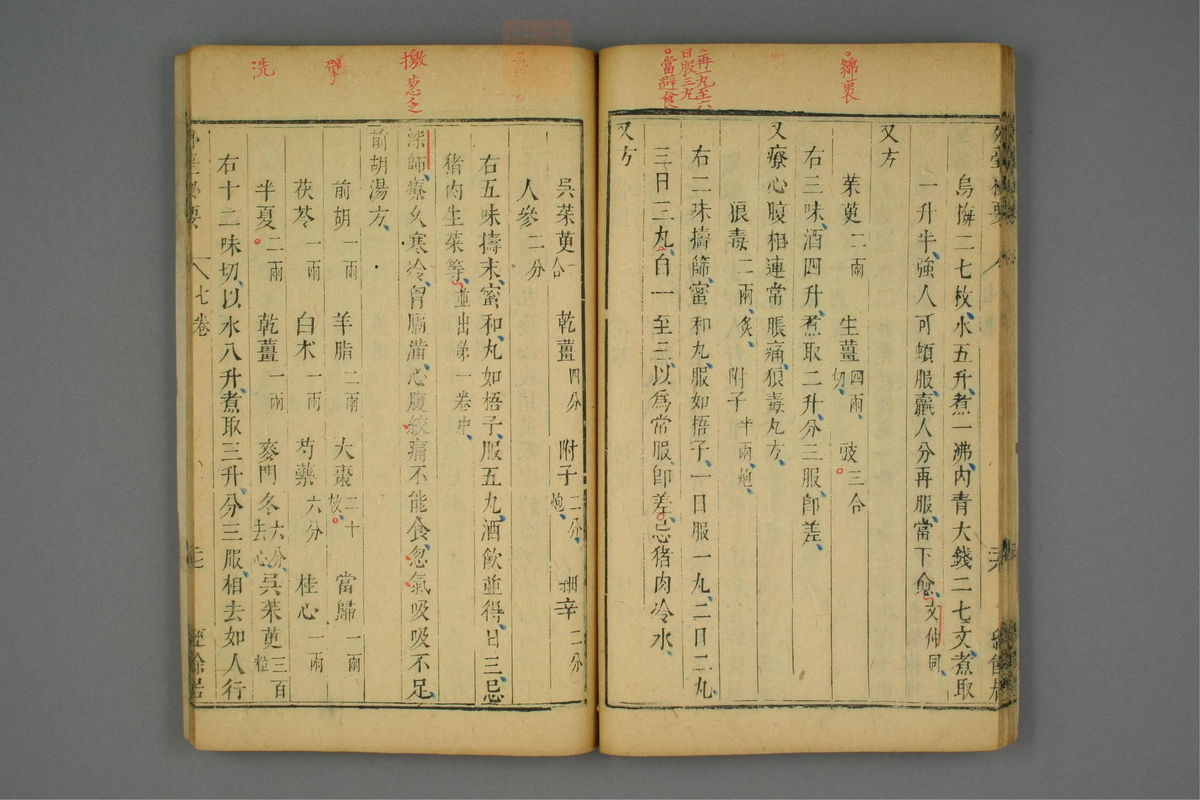 綿裹
再一丸至六
日服三丸
當避食
烏梅二七枚、水五升、煮一沸、內青大錢二七文、煮取
一升半、強人可頓服、羸人分再服、當下愈、文仲同、
又方
茱萸二兩 生薑四兩、切、 豉三合
右三味、酒四升、煮取二升、分三服、卽差、
又療心腹相連常脹痛、狼毒丸方、
狼毒二兩、炙、 附子半兩、炮、
右二味擣篩、蜜和丸、服如梧子、一日服一丸、二日二丸、
三日三丸、自一至三、以爲常服、卽差、忌猪肉冷水、
又方
撳
擘
洗
吳茱萸一合 乾薑四分 附子二分、炮、 細辛二分
人參二分
右五味擣末、蜜和丸如梧子、服五丸、酒飲並得、日三、忌
猪肉生菜等、並出第一卷中、
深師療久寒冷、胷膈滿、心腹絞痛不能食、忽氣吸吸不足、
前胡湯方、
前胡一兩 羊脂二兩 大棗二十枚、 當歸一兩
茯苓一兩 白朮一兩 芍藥六分 桂心一兩
半夏二兩 乾薑一兩 麥門冬六分、去心、 吳茱萸三百粒
右十二味切、以水八升、煮取三升、分三服、相去如人行
七卷